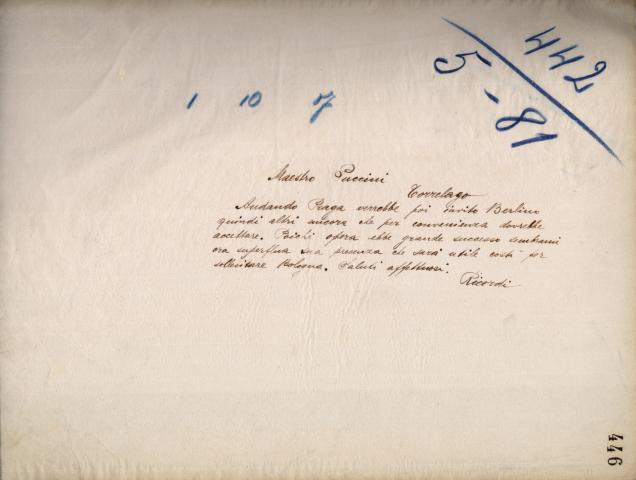 442
5 - 81
1 10 7
Maestro Puccini
Torrelago
Andando Praga verrebbe poi invito Berlino
quindi altri ancora che per convenienza dovrebbe
accettare. opera ebbe grande successo sembrami
ora superflua sua presenza che sarà utile costì per
sollecitare Bologna. Saluti affettuosi.
Ricordi
446